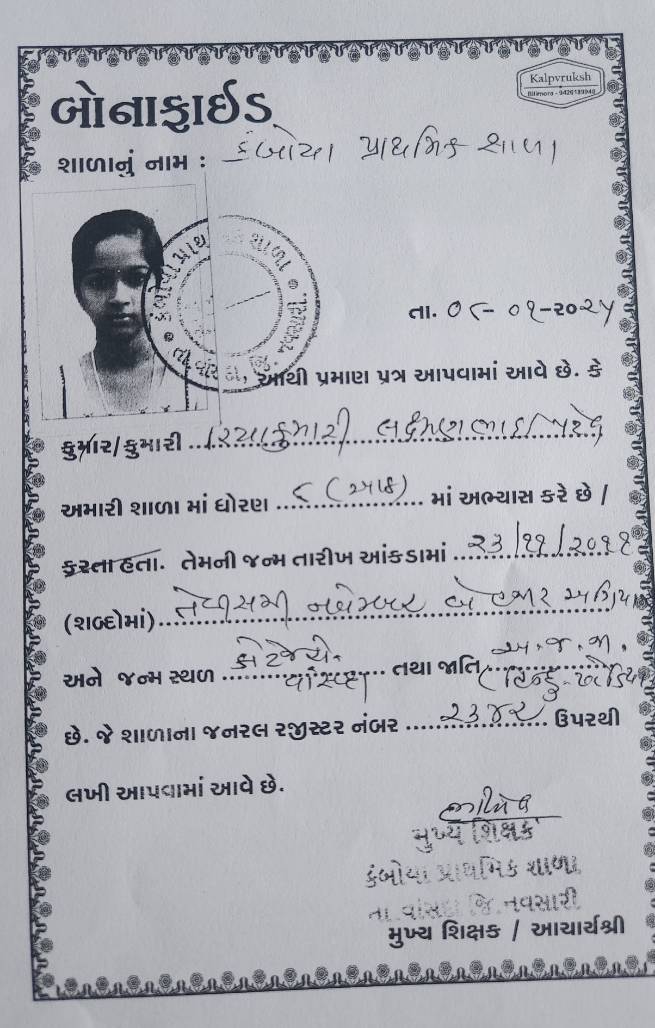 Kalpvruksh
Bilimora - 9426189940
બોનાફાઈડ
શાળાનું નામ : કંબોયા પ્રાથમિક શાળા
તા. ૦૮-૦૧-૨૦૨૫
આથી પ્રમાણ પત્ર આપવામાં આવે છે. કે
કુમાર/કુમારી રિયાકુમારી લક્ષ્મણભાઈ પટેલ
અમારી શાળા માં ધોરણ ૮ (આઠ) માં અભ્યાસ કરે છે /
કરતા હતા. તેમની જન્મ તારીખ આંકડામાં ૨૩/૧૧/૨૦૧૧
(શબ્દોમાં) તેવીસમી નવેમ્બર બે હજાર અગિયાર
અને જન્મ સ્થળ કોટેજ હો. વાંસદા તથા જાતિ અ.જ.જા. (હિન્દુ-ધોડિયા)
છે. જે શાળાના જનરલ રજીસ્ટર નંબર ૨૩૪૨ ઉપરથી
લખી આપવામાં આવે છે.
મુખ્ય શિક્ષક
કંબોયા પ્રાથમિક શાળા
તા.વાંસદા જિ.નવસારી
મુખ્ય શિક્ષક / આચાર્યશ્રી